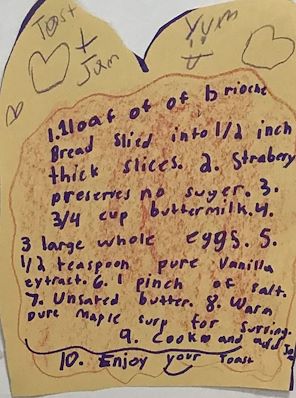 Toast
+
Jam
Yum
1. 1 loaf of of brioche
Bread Slied into 1/2 inch
thick slices. 2. Strabery
preserves no suger. 3.
3/4 cup buttermilk. 4.
3 large whole eggs. 5.
1/2 teaspoon pure Vanilla
extract. 6. 1 pinch of salt.
7. Unsated butter. 8. Warm
pure maple surp for surving.
9. Cook and add
10. Enjoy your Toast